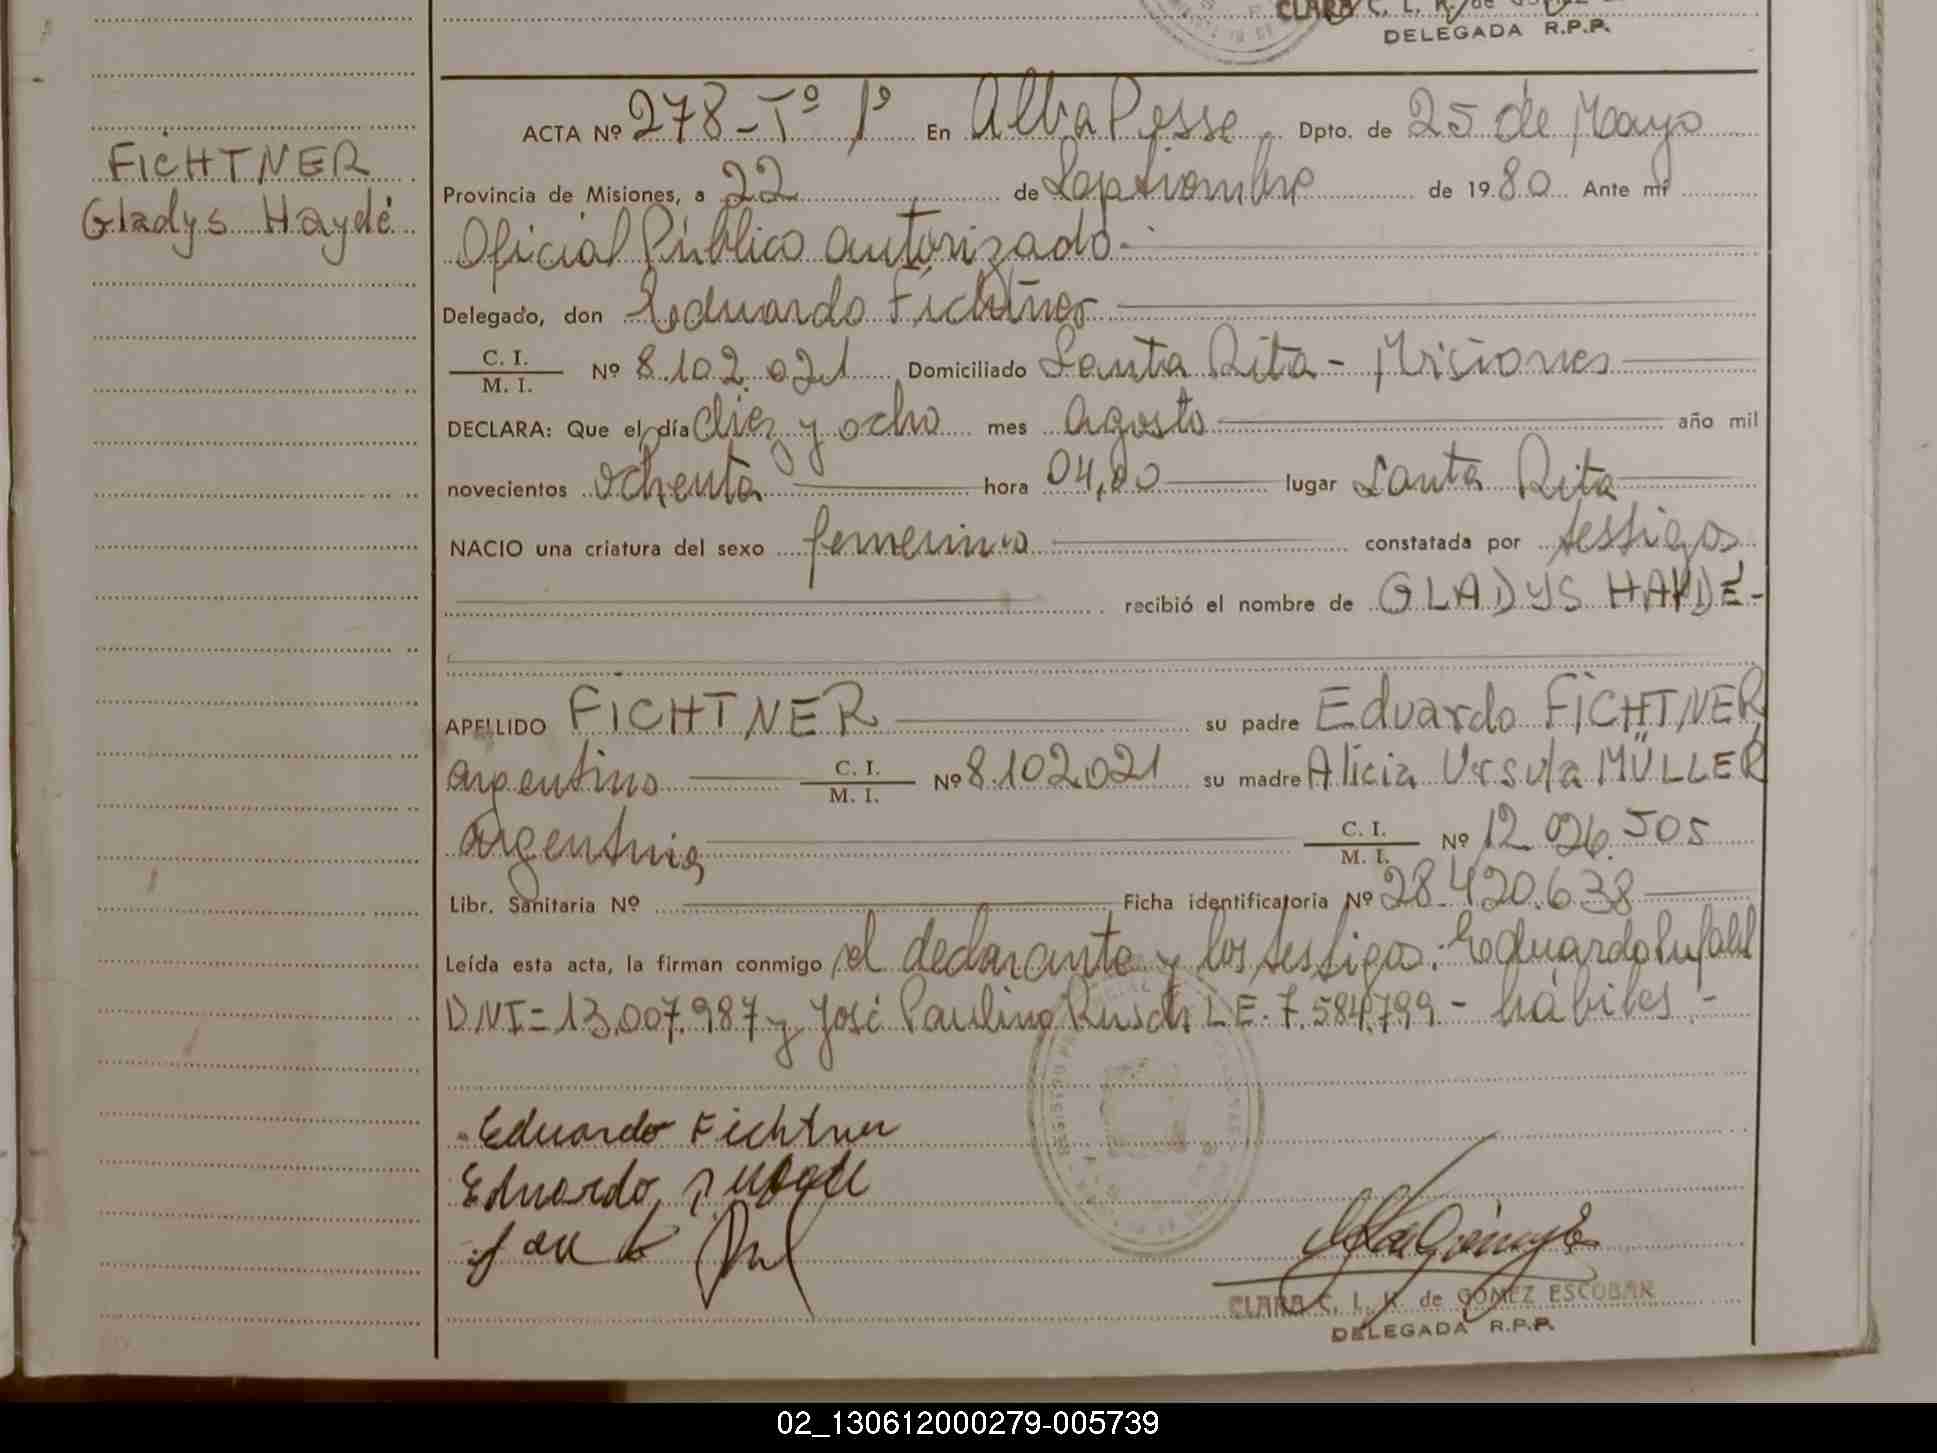 CLARA C. L. K. de GOMEZ
DELEGADA R.P.P.
FICHTNER
Gladys Haydé
ACTA Nº 278 - Tº 1º En Alba Posse. Dpto. de 25 de Mayo
Provincia de Misiones, a 22 de Septiembre de 1980 Ante mí
Oficial Público autorizado.-
Delegado, don Eduardo Fichtner
C. I.
M. I. Nº 8.102.021 Domiciliado Santa Rita - Misiones
DECLARA: Que el día diez y ocho mes agosto año mil
novecientos ochenta hora 04,00 lugar Santa Rita
NACIO una criatura del sexo femenino constatada por testigos
recibió el nombre de GLADYS HAYDÉ-
APELLIDO FICHTNER su padre Eduardo FICHTNER
argentino C. I. M. I. Nº 8.102.021 su madre Alicia Ursula MÜLLER
argentina C. I. M. I. Nº 12.026.505
Libr. Sanitaria Nº Ficha identificatoria Nº 28.420.638
Leída esta acta, la firman conmigo el declarante y los testigos: Eduardo Pufahl
DNI= 13.007.987 y José Paulino Rusch L E. 7.584.799 - hábiles.-
Eduardo Fichtner
Eduardo
CLARA C. L. K. de GOMEZ ESCOBAR
DELEGADA R.P.P.
02_130612000279-005739